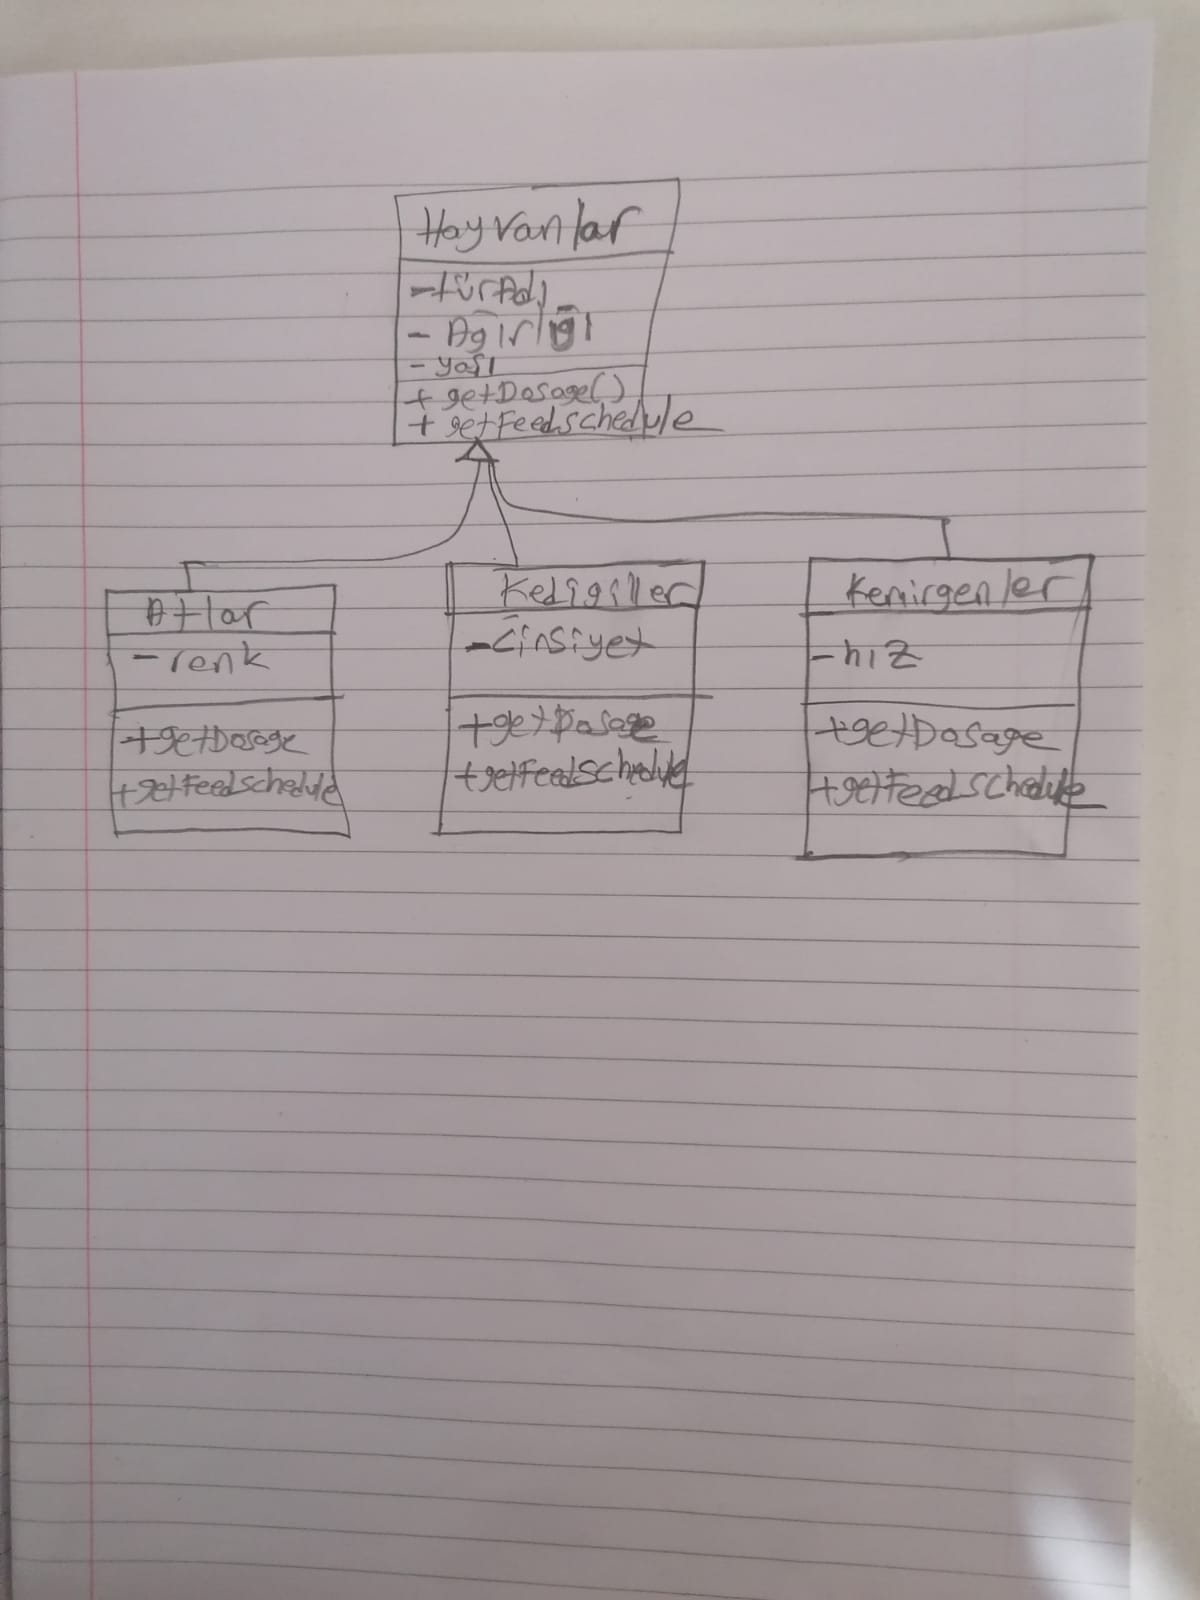 Hayvanlar
- türAdı
- Ağırlığı
- yaşı
+ getDosage()
+ getFeedSchedule
Atlar
- renk
+getDosage
+getFeedSchedule
Kedigiller
- Cinsiyet
+getDosage
+getFeedSchedule
Kemirgenler
- hız
+getDosage
+getFeedSchedule